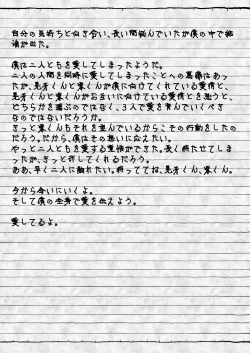 自分の気持ちと向き合い、長い間悩んでいたが僕の中で結
論が出た。
僕は二人ともを愛してしまったようだ。
二人の人間を同時に愛してしまったことへの葛藤はあっ
たが、兄者くんと紫くんが僕に向けてくれている愛情と、
兄者くんと紫くんがお互いに向けている愛情とを思うと、
どちらかを選ぶのではなく、3人で愛を育んでいくべき
なのではないだろうか。
きっと紫くんもそれを望んでいるからこその行動をしたの
だろう。だから、僕はその想いに応えたい。
やっと二人ともを愛する覚悟ができた。長く待たせてしま
ったが、きっと許してくれるだろう。
ああ、早く二人に触れたい。待っててね、兄者くん、紫くん。
今から会いにいくよ。
そして僕の全身で愛を伝えよう。
愛してるよ。